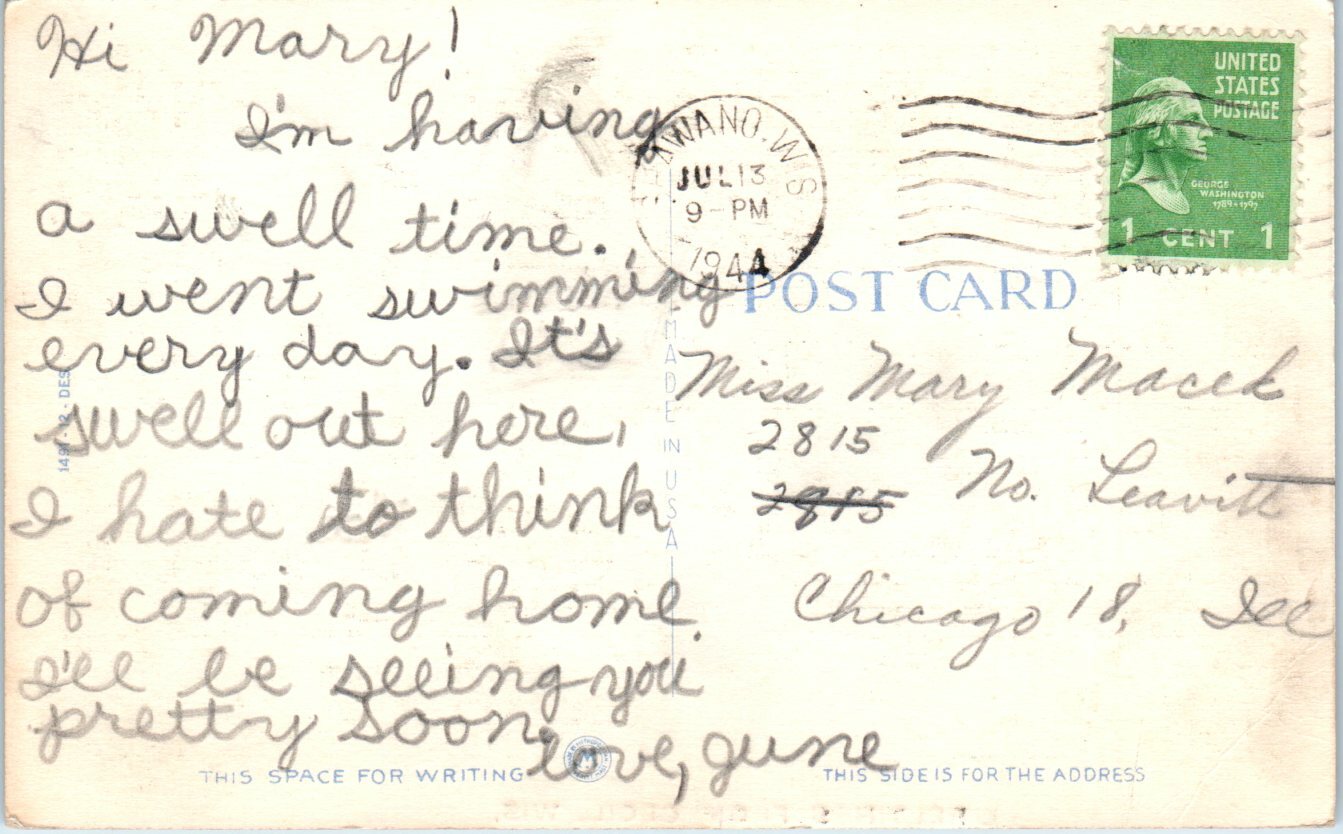 Hi Mary!
I'm having
a swell time.
I went swimming
every day. It's
swell out here,
I hate to think
of coming home.
I'll be seeing you
pretty soon.
love, June
THIS SPACE FOR WRITING
AWANO, WIS
JUL 13
9-PM
1944
UNITED
STATES
POSTAGE
GEORGE
WASHINGTON
1789-1797
1 CENT 1
POST CARD
MADE IN USA
Miss Mary Macek
2815
2915
No. Leavitt
Chicago 18, Ill
THIS SIDE IS FOR THE ADDRESS